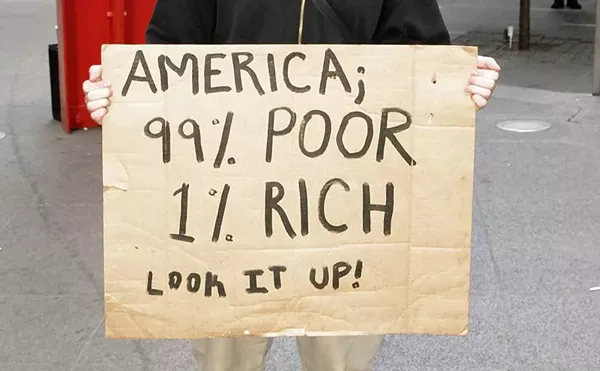 AMERICA;
99% POOR
1% RICH
LOOK IT UP!